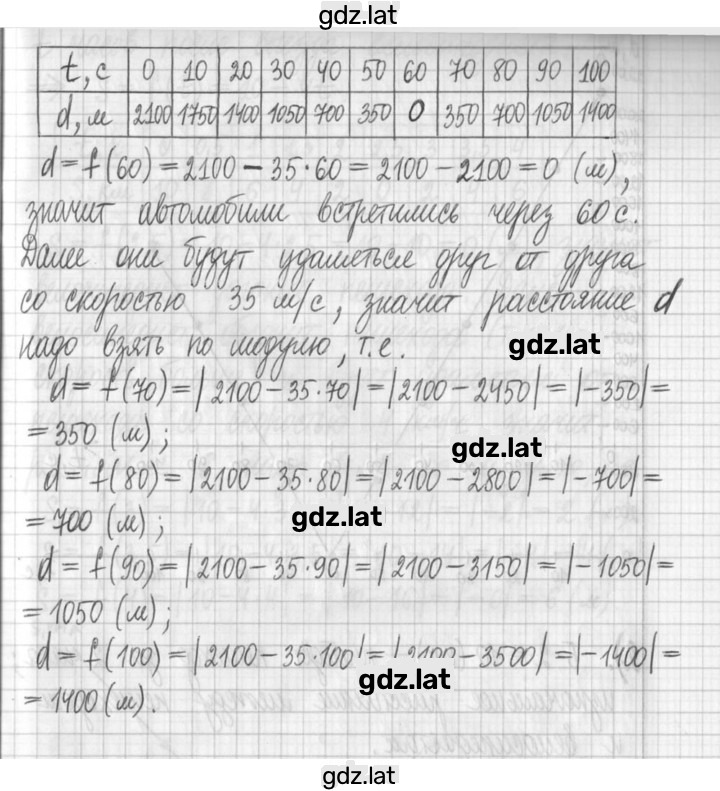 gdz.lat
t, с 0 10 20 30 40 50 60 70 80 90 100
d, м 2100 1750 1400 1050 700 350 0 350 700 1050 1400
d = f(60) = 2100 - 35·60 = 2100 - 2100 = 0 (м),
значит автомобили встретились через 60 с.
Далее они будут удаляться друг от друга
со скоростью 35 м/с, значит расстояние d
надо взять по модулю, т.е.
gdz.lat
d = f(70) = |2100 - 35·70| = |2100 - 2450| = |-350| =
= 350 (м);
gdz.lat
d = f(80) = |2100 - 35·80| = |2100 - 2800| = |-700| =
= 700 (м);
gdz.lat
d = f(90) = |2100 - 35·90| = |2100 - 3150| = |-1050| =
= 1050 (м);
d = f(100) = |2100 - 35·100| = |2100 - 3500| = |-1400| =
gdz.lat
= 1400 (м).
gdz.lat